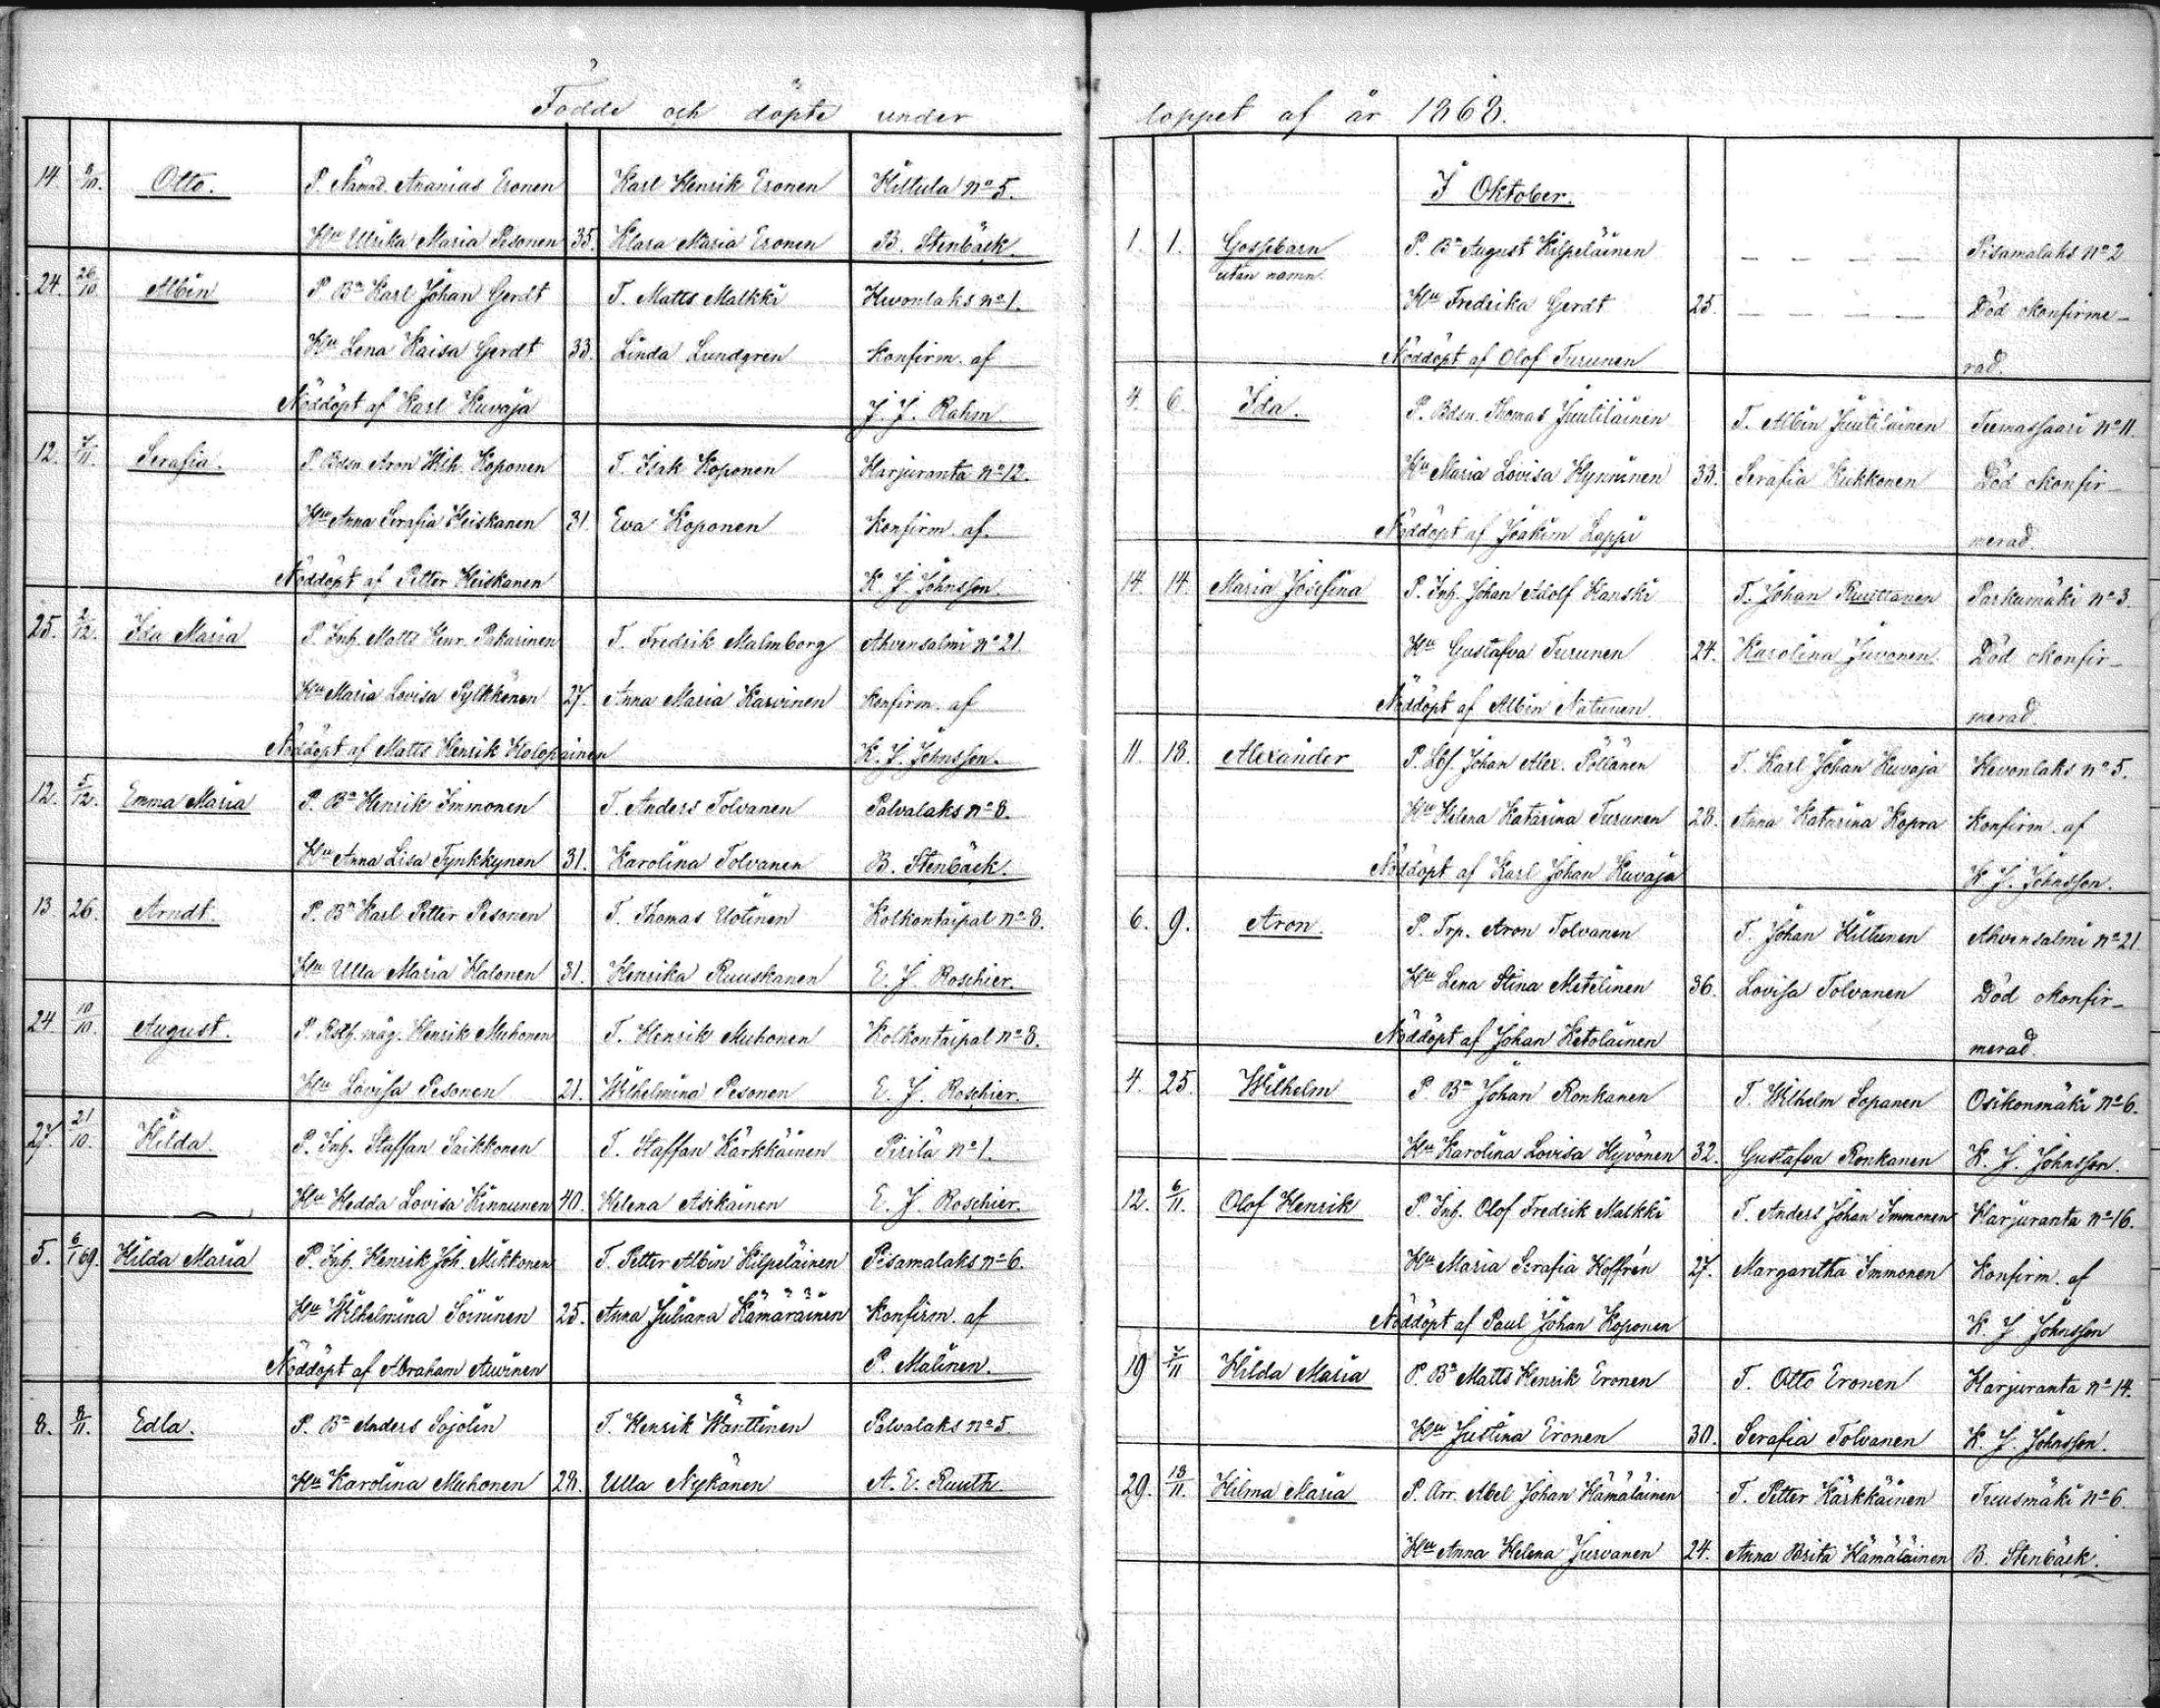 Födde och döpte under
14. 9/10. Otto. P. Nämnd. Ananias Eronen Karl Henrik Eronen Hiltula No 5.
Hu Ulrika Maria Pesonen 35. Klara Maria Eronen B. Stenbäck.
24. 26/10 Albin P. Bn Karl Johan Gerdt T. Matts Malkki Hevonlaks No 1.
Hu Lena Kaisa Gerdt 33. Linda Lundgren Konfirm. af
Nöddöpt af Karl Kuvaja J. J. Rahm.
12. 7/11. Serafia. P. Bdsn. Aron Wilh. Koponen T. Isak Koponen Harjuranta No 12.
Hu Anna Serafia Heiskanen 31. Eva Koponen Konfirm. af
Nöddöpt af Petter Heiskanen K. J. Johnsson.
25. 2/12. Ida Maria P. Inh. Matts Henr. Pakarinen T. Fredrik Malmborg Ahvensalmi No 21
Hu Maria Lovisa Pylkkönen 27. Anna Maria Karvinen Konfirm. af
Nöddöpt af Matts Henrik Holopainen K. J. Johnsson.
12. 5/12. Emma Maria P. Bn Henrik Immonen T. Anders Tolvanen Palvalaks No 8.
Hu Anna Lisa Tynkkynen 31. Karolina Tolvanen B. Stenbäck.
13 26. Arndt. P. Bn Karl Petter Pesonen T. Thomas Uotinen Kolkontaipal No 8.
Hu Ulla Maria Halonen 31. Henrika Ruuskanen E. J. Roschier.
24. 10/10. August. P. Rstg. måg. Henrik Muhonen T. Henrik Muhonen Kolkontaipal No 8.
Hu Lovisa Pesonen 21. Wilhelmina Pesonen E. J. Roschier.
27 21/10. Hilda. P. Inh. Staffan Saikkonen T. Staffan Kärkkäinen Pirilä No 1.
Hu Hedda Lovisa Kinnunen 40. Helena Asikainen E. J. Roschier.
5. 6/1 69. Hilda Maria P. Inh. Henrik Joh. Mikkonen T. Petter Albin Kilpeläinen Pisamalaks No 6.
Hu Wilhelmina Soininen 25. Anna Juliana Kämäräinen Konfirm. af
Nöddöpt af Abraham Auvinen P. Malinen.
8. 8/11. Edla. P. Bn Anders Sajolin T. Henrik Wänttinen Palvalaks No 5.
Hu Karolina Muhonen 28. Ulla Nykänen A. E. Ruuth
loppet af år 1868.
I Oktober.
1. 1. Gossebarn P. Bn August Kilpeläinen _ _ _ _ Pisamalaks No 2
utan namn.
Hu Fredrika Gerdt 25. _ _ _ _ Död okonfirme-
Nöddöpt af Olof Turunen rad.
4. 6. Ida. P. Bdsn. Thomas Juutiläinen T. Albin Juutiläinen Teemassaari No 11.
Hu Maria Lovisa Hynninen 33. Serafia Kukkonen Död okonfir-
Nöddöpt af Joakim Lappi merad.
14. 14. Maria Josefina P. Inh. Johan Adolf Hanski T. Johan Ruuttanen Parkumäki No 3.
Hu Gustafva Turunen 24. Karolina Juvonen. Död okonfir-
Nöddöpt af Albin Natunen. merad.
11. 18. Alexander P. Lbf. Johan Alex. Pöllänen T. Karl Johan Kuvaja Hevonlaks No 5.
Hu Helena Katarina Turunen 28. Anna Katarina Kopra Konfirm. af
Nöddöpt af Karl Johan Kuvaja K. J. Johnsson.
6. 9. Aron. P. Trp. Aron Tolvanen T. Johan Hiltunen Ahvensalmi No 21
Hu Lena Stina Metelinen 36. Lovisa Tolvanen Död okonfir-
Nöddöpt af Johan Ketolainen merad.
4. 25. Wilhelm P. Bn Johan Ronkanen T. Wilhelm Sopanen Osikonmäki No 6.
Hu Karolina Lovisa Hyvönen 32. Gustafva Ronkanen K. J. Johnsson.
12. 6/11. Olof Henrik P. Inh. Olof Fredrik Malkki T. Anders Johan Immonen Harjuranta No 16.
Hu Maria Serafia Hoffrén 27. Margaretha Immonen Konfirm. af
Nöddöpt af Paul Johan Koponen K. J. Johnsson
19 7/11 Hilda Maria P. Bn Matts Henrik Eronen T. Otto Eronen Harjuranta No 14.
Hu Justina Eronen 30. Serafia Tolvanen K. J. Johnsson.
29. 18/11. Hilma Maria P. Arr. Abel Johan Hämäläinen T. Petter Kärkkäinen Tuusmäki No 6
Hu Anna Helena Jurvanen 24. Anna Brita Hämäläinen B. Stenbäck.